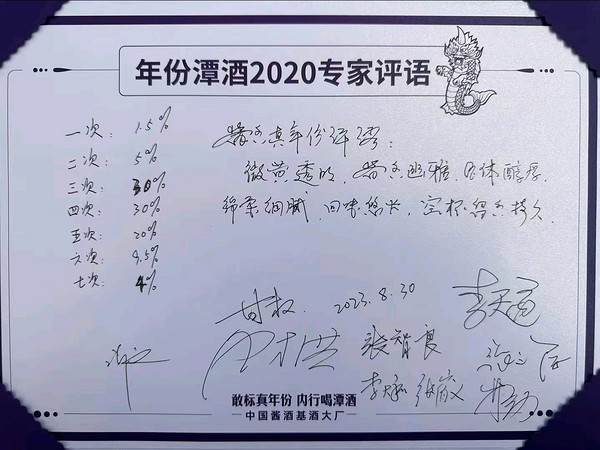 年份潭酒2020专家评语
一次: 1.5%
二次: 5%
三次: 30%
四次: 30%
五次: 20%
六次: 9.5%
七次: 4%
酱香真年份评语:
微黄透明、酱香幽雅、酒体醇厚、
绵柔细腻、回味悠长、空杯留香持久
2023.8.30
张智良
敢标真年份 内行喝潭酒
中国酱酒基酒大厂